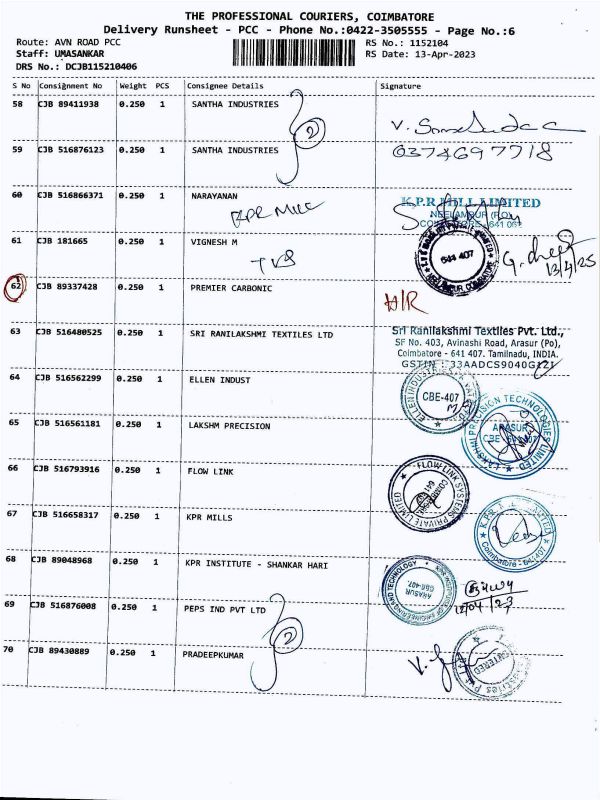 THE PROFESSIONAL COURIERS, COIMBATORE
Delivery Runsheet - PCC - Phone No.:0422-3505555 - Page No.:6
Route: AVN ROAD PCC
RS No.: 1152104
Staff: UMASANKAR
RS Date: 13-Apr-2023
DRS No.: DCJB115210406
S No Consignment No Weight PCS Consignee Details Signature
58 CJB 89411938 0.250 1 SANTHA INDUSTRIES
2
59 CJB 516876123 0.250 1 SANTHA INDUSTRIES
0374697718
60 CJB 516866371 0.250 1 NARAYANAN
KPR MILL
K.P.R MILL LIMITED
NEELAMPUR (PO)
COIMBATORE - 641 062
61 CJB 181665 0.250 1 VIGNESH M
TVS
641 407
62 CJB 89337428 0.250 1 PREMIER CARBONIC
63 CJB 516480525 0.250 1 SRI RANILAKSHMI TEXTILES LTD
Sri Ranilakshmi Textiles Pvt. Ltd.,
SF No. 403, Avinashi Road, Arasur (Po),
Coimbatore - 641 407. Tamilnadu, INDIA.
64 CJB 516562299 0.250 1 ELLEN INDUST
CBE-407
65 CJB 516561181 0.250 1 LAKSHM PRECISION
LAKSHMI PRECISION TECHNOLOGIES LIMITED
ARASUR
66 CJB 516793916 0.250 1 FLOW LINK
FLOW LINK SYSTEMS PRIVATE LIMITED
67 CJB 516658317 0.250 1 KPR MILLS
Coimbatore - 641 407
68 CJB 89048968 0.250 1 KPR INSTITUTE - SHANKAR HARI
ARASUR
69 CJB 516876008 0.250 1 PEPS IND PVT LTD
2
70 CJB 89430889 0.250 1 PRADEEPKUMAR